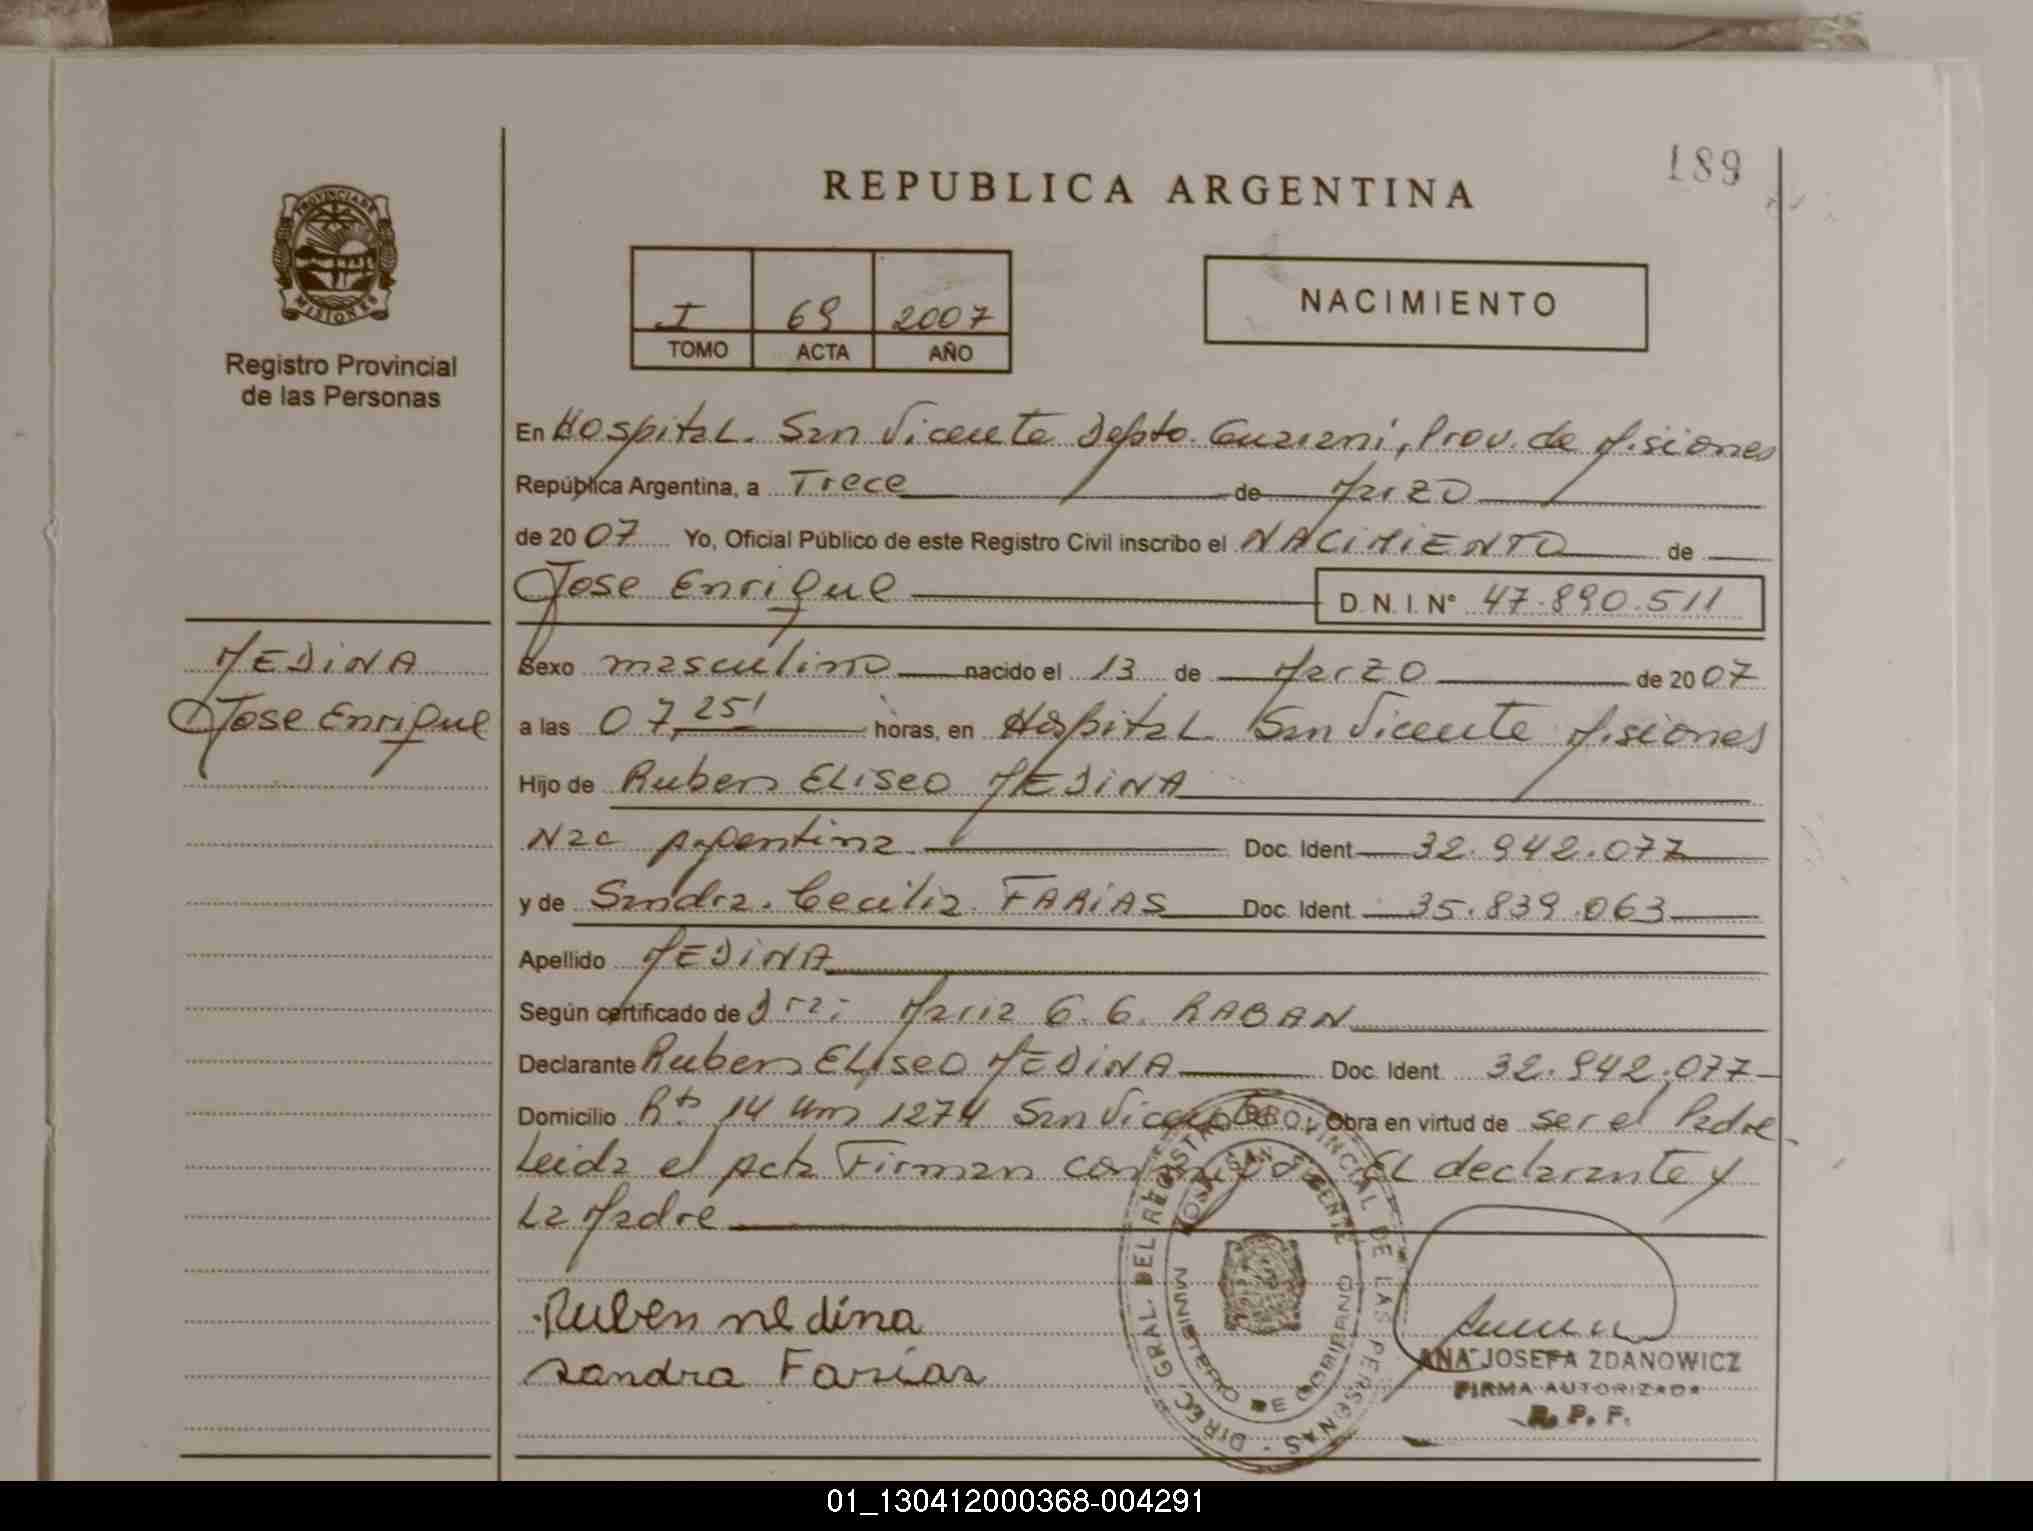 189
REPUBLICA ARGENTINA
PROVINCIA DE MISIONES
Registro Provincial
de las Personas
I 69 2007
TOMO ACTA AÑO
NACIMIENTO
En Hospital. San Vicente Depto. Guarani, Prov. de Misiones
República Argentina, a Trece de Marzo
de 2007 Yo, Oficial Público de este Registro Civil inscribo el NACIMIENTO de
Jose Enrique D.N.I. N° 47.890.511
MEDINA
Jose Enrique
Sexo masculino nacido el 13 de Marzo de 2007
a las 07,25' horas, en Hospital. San Vicente Misiones
Hijo de Ruben ELiseo MEDINA
Nac Argentina Doc. Ident. 32.942.077
y de Sandra. Cecilia FARIAS Doc. Ident. 35.839.063
Apellido MEDINA
Según certificado de Dra: Maria G. G. RABAN
Declarante Ruben ELiseo MEDINA Doc. Ident. 32.942.077
Domicilio Rta 14 Km 1274 San Vicente Obra en virtud de ser el Padre
Leida el Acta Firman conmigo EL declarante y
La Madre
Ruben medina
sandra Farias
DIREC. GRAL. DEL REGISTRO PROVINCIAL DE LAS PERSONAS
HOSP. SAN VICENTE
MINISTERIO DE GOBIERNO
ANA JOSEFA ZDANOWICZ
FIRMA AUTORIZADA
R. P. F.
01_130412000368-004291